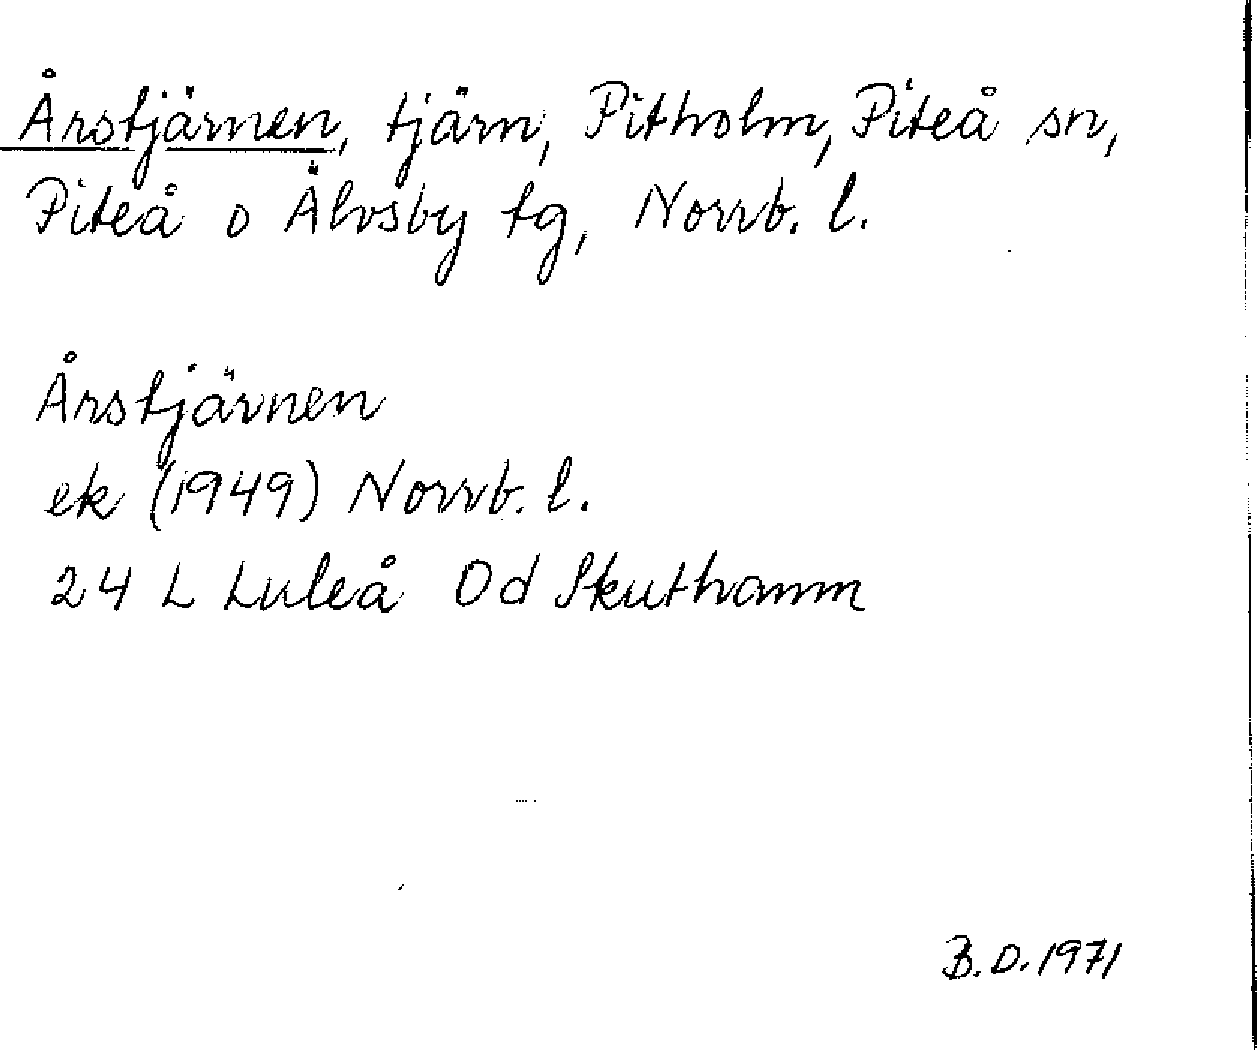 Årstjärnen, tjärn, Pitholm, Piteå sn,
Piteå o Älvsby tg, Norrb. l.
Årstjärnen
ek (1949) Norrb. l.
24 L Luleå Od Skuthamn
B.D. 1971